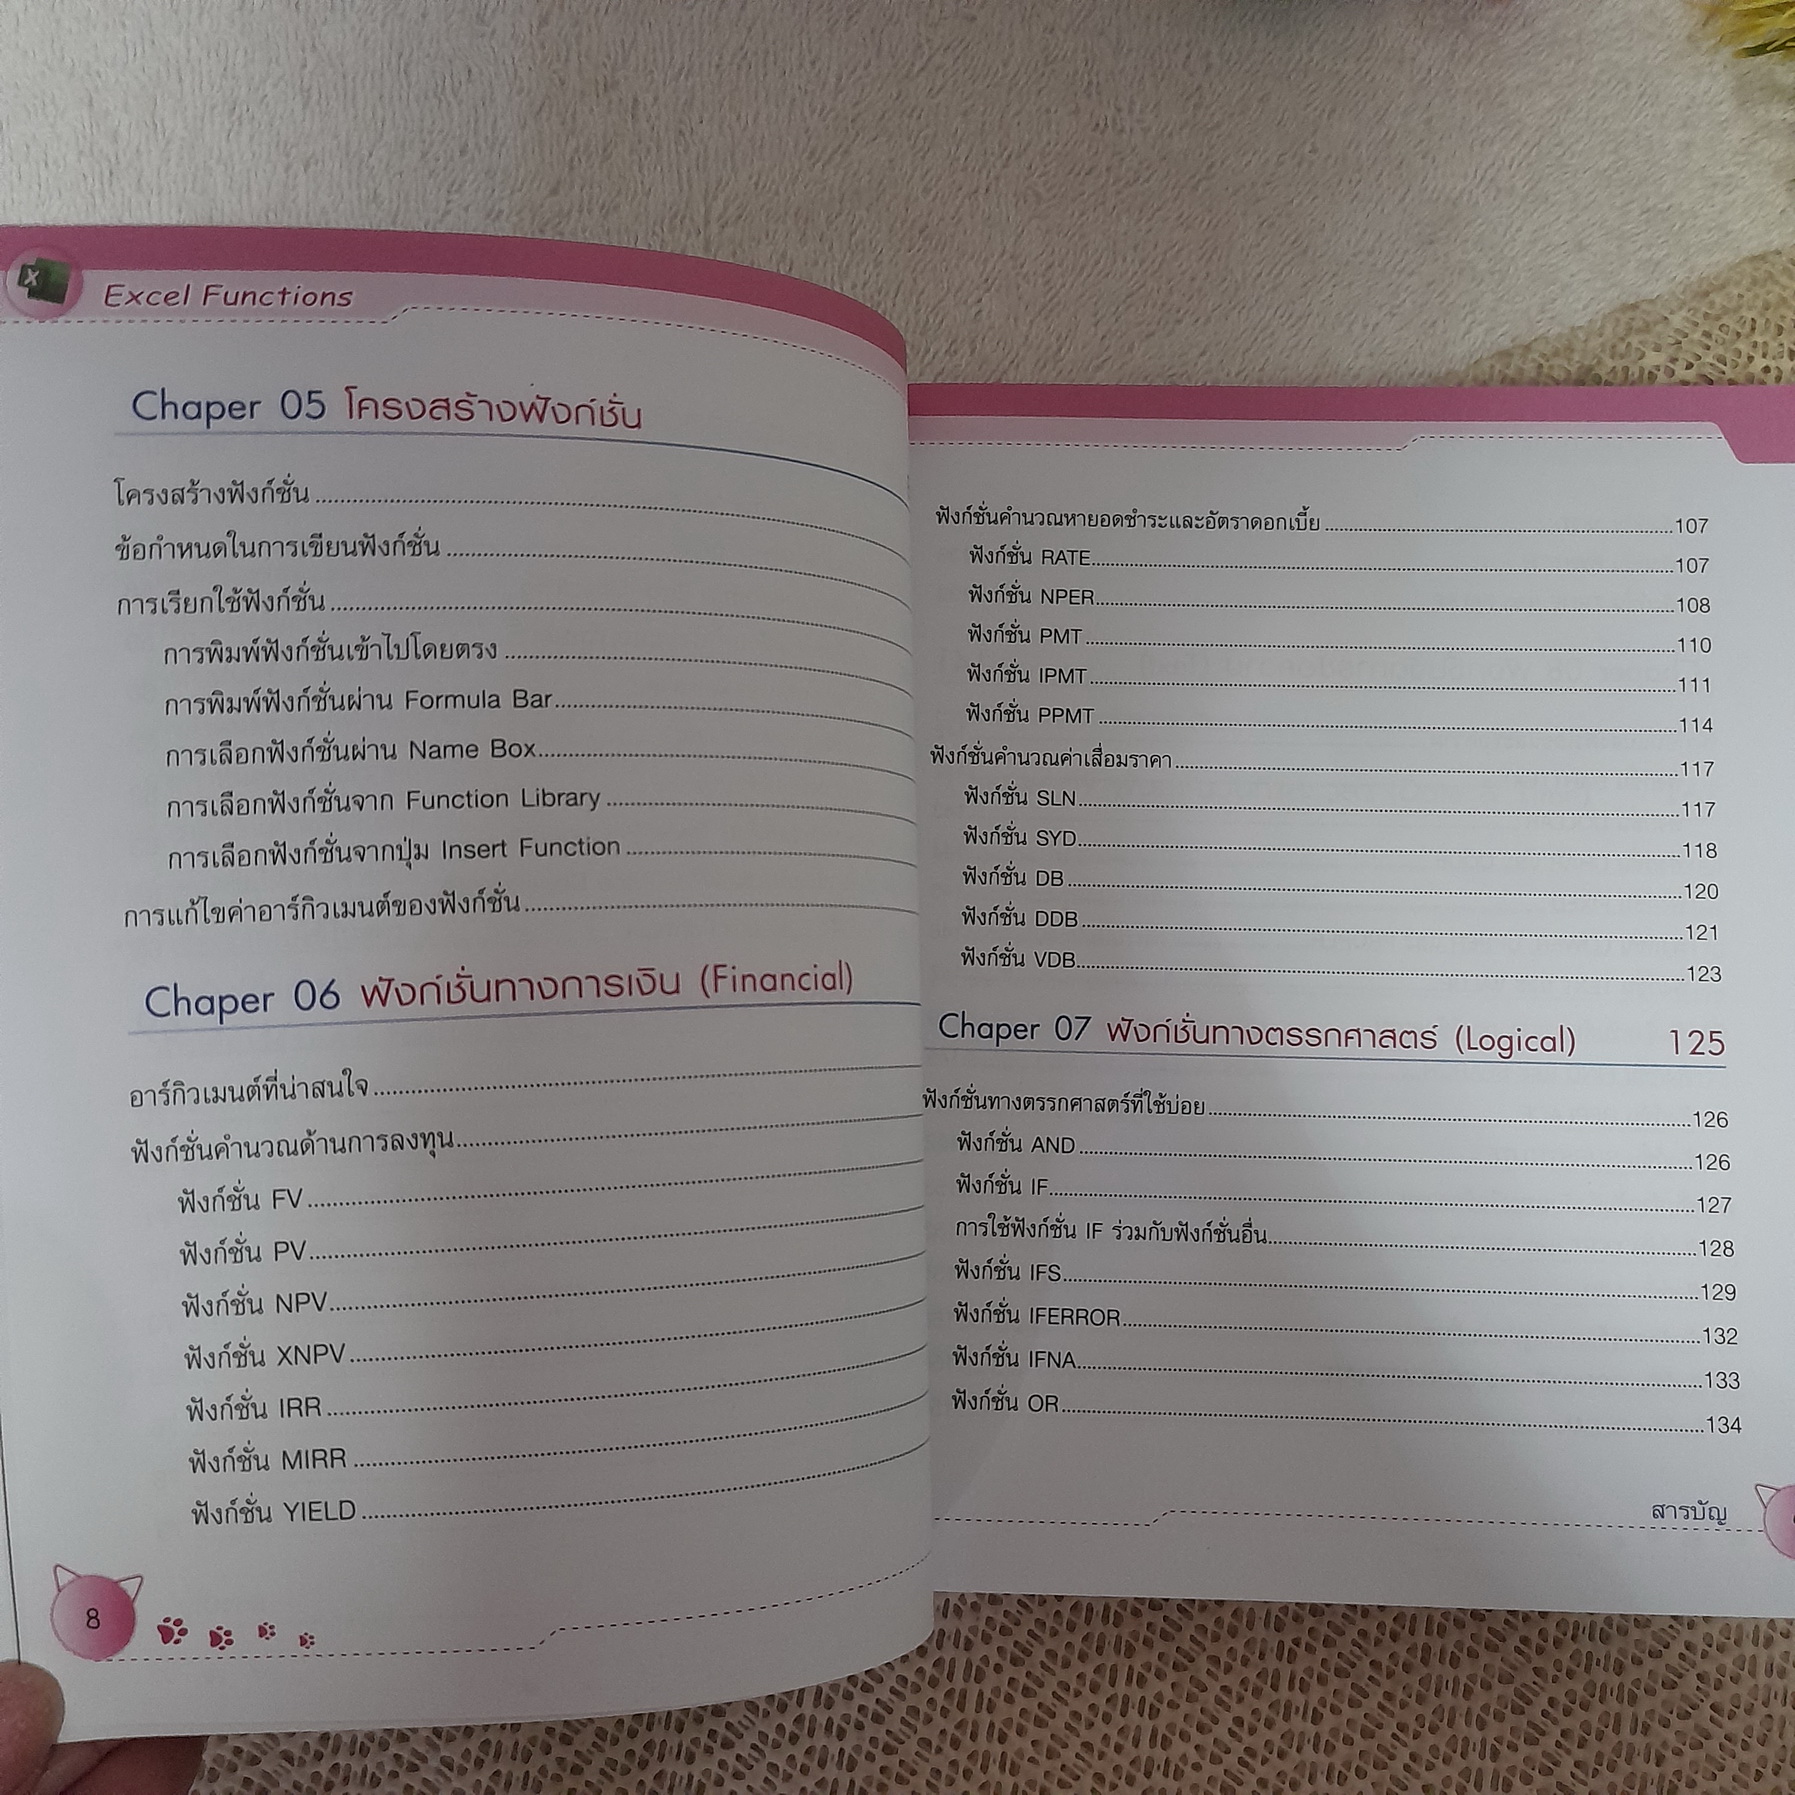 Excel Functions
Chaper 05 โครงสร้างฟังก์ชั่น
โครงสร้างฟังก์ชั่น
ข้อกำหนดในการเขียนฟังก์ชั่น
การเรียกใช้ฟังก์ชั่น
การพิมพ์ฟังก์ชั่นเข้าไปโดยตรง
การพิมพ์ฟังก์ชั่นผ่าน Formula Bar
การเลือกฟังก์ชั่นผ่าน Name Box
การเลือกฟังก์ชั่นจาก Function Library
การเลือกฟังก์ชั่นจากปุ่ม Insert Function
การแก้ไขค่าอาร์กิวเมนต์ของฟังก์ชั่น
Chaper 06 ฟังก์ชั่นทางการเงิน (Financial)
อาร์กิวเมนต์ที่น่าสนใจ
ฟังก์ชั่นคำนวณด้านการลงทุน
ฟังก์ชั่น FV
ฟังก์ชั่น PV
ฟังก์ชั่น NPV
ฟังก์ชั่น XNPV
ฟังก์ชั่น IRR
ฟังก์ชั่น MIRR
ฟังก์ชั่น YIELD
8
ฟังก์ชั่นคำนวณหายอดชำระและอัตราดอกเบี้ย 107
ฟังก์ชั่น RATE 107
ฟังก์ชั่น NPER 108
ฟังก์ชั่น PMT 110
ฟังก์ชั่น IPMT 111
ฟังก์ชั่น PPMT 114
ฟังก์ชั่นคำนวณค่าเสื่อมราคา 117
ฟังก์ชั่น SLN 117
ฟังก์ชั่น SYD 118
ฟังก์ชั่น DB 120
ฟังก์ชั่น DDB 121
ฟังก์ชั่น VDB 123
Chaper 07 ฟังก์ชั่นทางตรรกศาสตร์ (Logical) 125
ฟังก์ชั่นทางตรรกศาสตร์ที่ใช้บ่อย 126
ฟังก์ชั่น AND 126
ฟังก์ชั่น IF 127
การใช้ฟังก์ชั่น IF ร่วมกับฟังก์ชั่นอื่น 128
ฟังก์ชั่น IFS 129
ฟังก์ชั่น IFERROR 132
ฟังก์ชั่น IFNA 133
ฟังก์ชั่น OR 134
สารบัญ